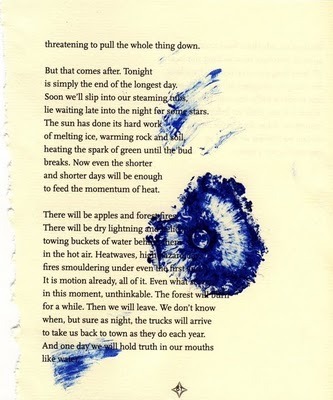 threatening to pull the whole thing down.
But that comes after. Tonight
is simply the end of the longest day.
Soon we'll slip into our steaming tubs,
lie waiting late into the night for some stars.
The sun has done its hard work
of melting ice, warming rock and soil,
heating the spark of green until the bud
breaks. Now even the shorter
and shorter days will be enough
to feed the momentum of heat.
There will be apples and forest fires.
There will be dry lightning and
towing buckets of water
in the hot air. Heatwaves,
fires smouldering under even the first
It is motion already, all of it. Even what
in this moment, unthinkable. The forest will burn
for a while. Then we will leave. We don't know
when, but sure as night, the trucks will arrive
to take us back to town as they do each year.
And one day we will hold truth in our mouths
like water.